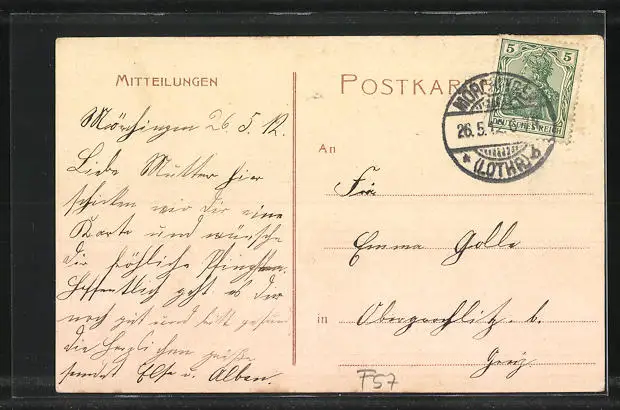 Mitteilungen
Mörchingen 26. 5. 12.
Liebe Mutter hier
schicken wir dir eine
Karte und wünsche
dir fröhliche Pfingsten.
Hoffentlich geht es dir
noch gut und
die Herzlichen Grüße
sendet Else u. Alban.
Postkar
5 5
DEUTSCHES REICH
MÖRCHINGEN
26.5.12
* (LOTHR) b
An
Fr
Emma Golle
in Obergrochlitz b.
Greiz
F57